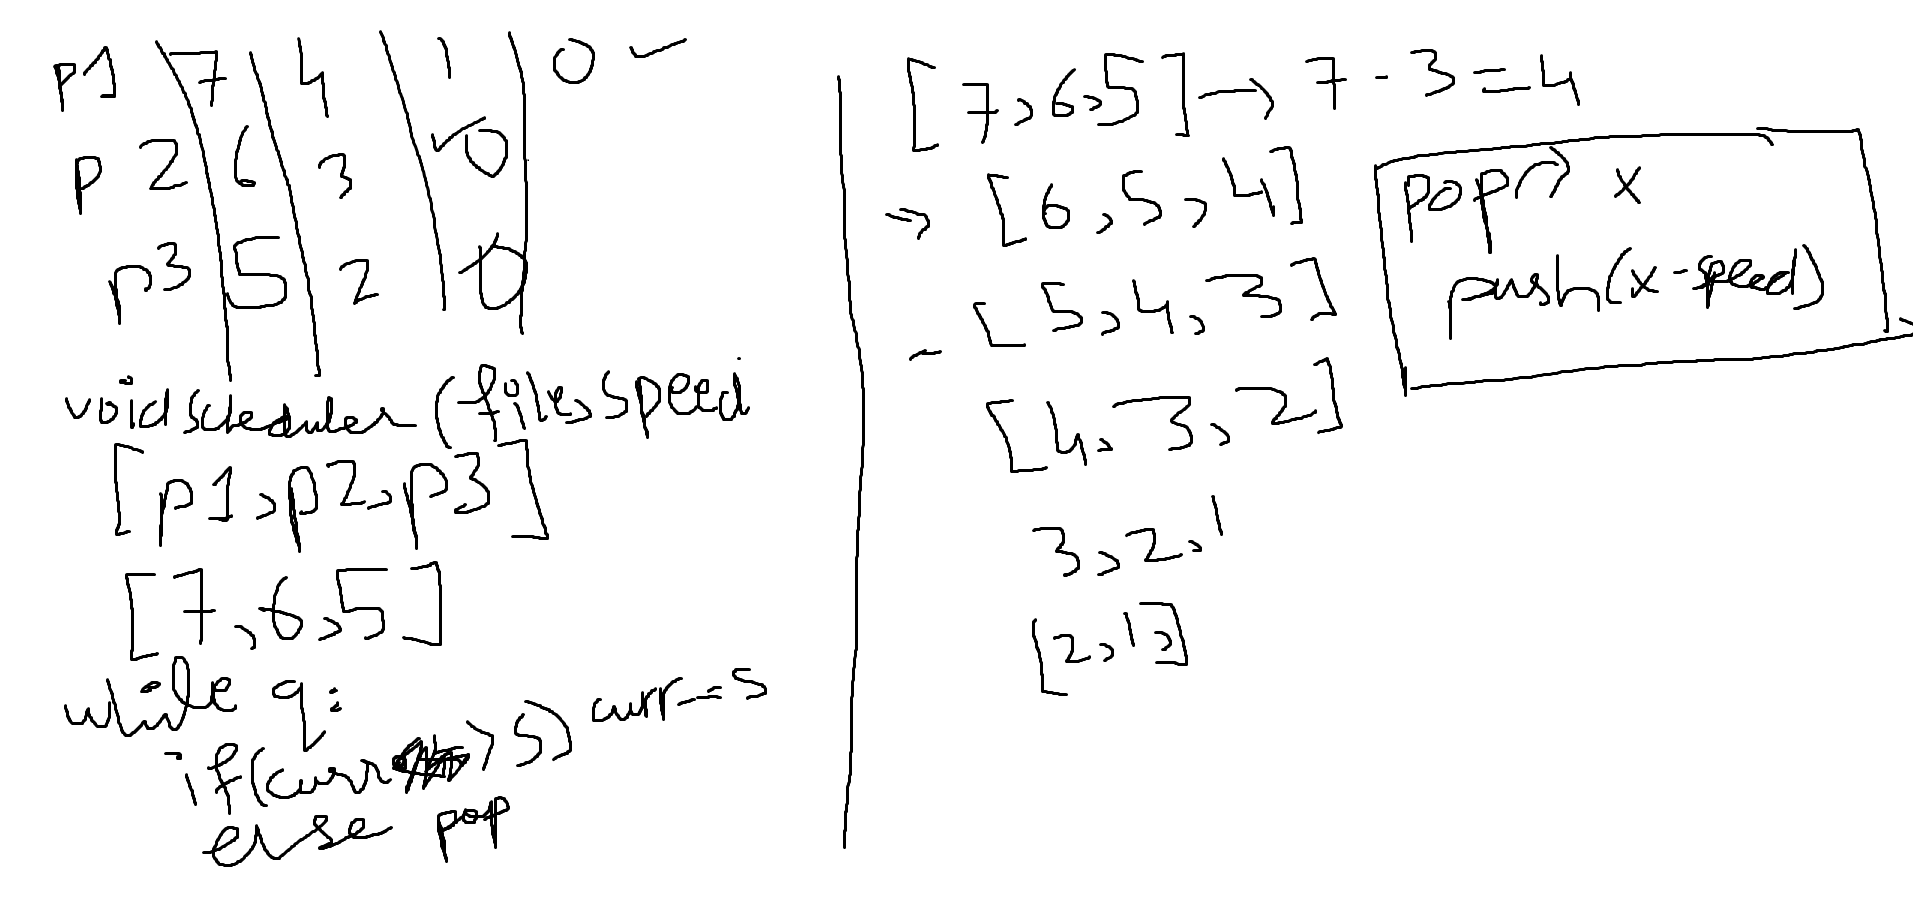 p1 7 4 1 0 ✓
p 2 6 3 ✓0
p3 5 2 0
void scheduler (files, speed
[p1, p2, p3]
[7, 6, 5]
while q:
if(curr > S) curr -= S
else pop
[7, 6, 5] → 7 - 3 = 4
⇒ [6, 5, 4]
- [5, 4, 3]
[4, 3, 2]
3, 2, 1
[2, 1, ]
pop → x
push(x-speed)